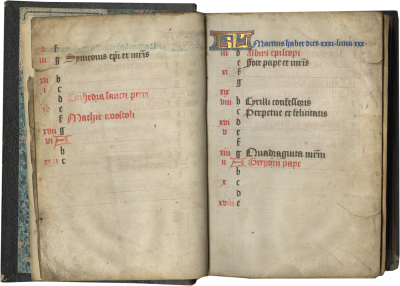 f
iii g Symeonis epi et mris
xi b
i c
d Cathedra sancti petri
e
f Mathie apostoli
xviii g
vi A
b
c
KL Martius habet dies xxxi luna xxx
iii d Albini episcopi
e Foce pape et mris
f
xix
viii b Cyrilli confessoris
c Perpetue et felicitatis
xvi d
v e
f
xiii g Quadraginta mrm
ii A Gregorii pape
b
c
d
xviii e